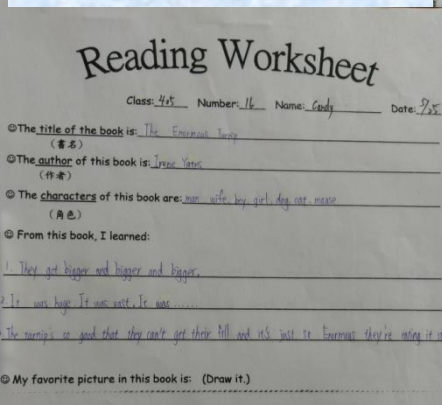 Reading Worksheet
Class: 405 Number: 16 Name: Candy Date: 5/25
☺The title of the book is: The Enormous Turnip
(書名)
☺The author of this book is: Irene Yates
(作者)
☺ The characters of this book are: man, wife, boy, girl, dog, cat, mouse
(角色)
☺ From this book, I learned:
1. They get bigger and bigger and bigger.
2. It was huge. It was vast. It was ......
The turnip's so good that they can't get their fill and it's just so Enormous they're eating it
☺ My favorite picture in this book is: (Draw it.)